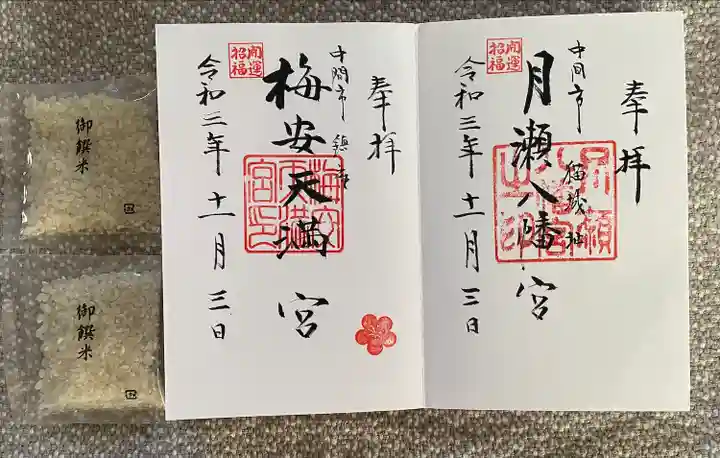 奉拝
中間市 猫城址
月瀬八幡宮
開運招福
令和三年十一月三日
奉拝
中間市 鎮座
梅安天満宮
梅安天満宮印
開運招福
令和三年十一月三日
御饌米
御饌米